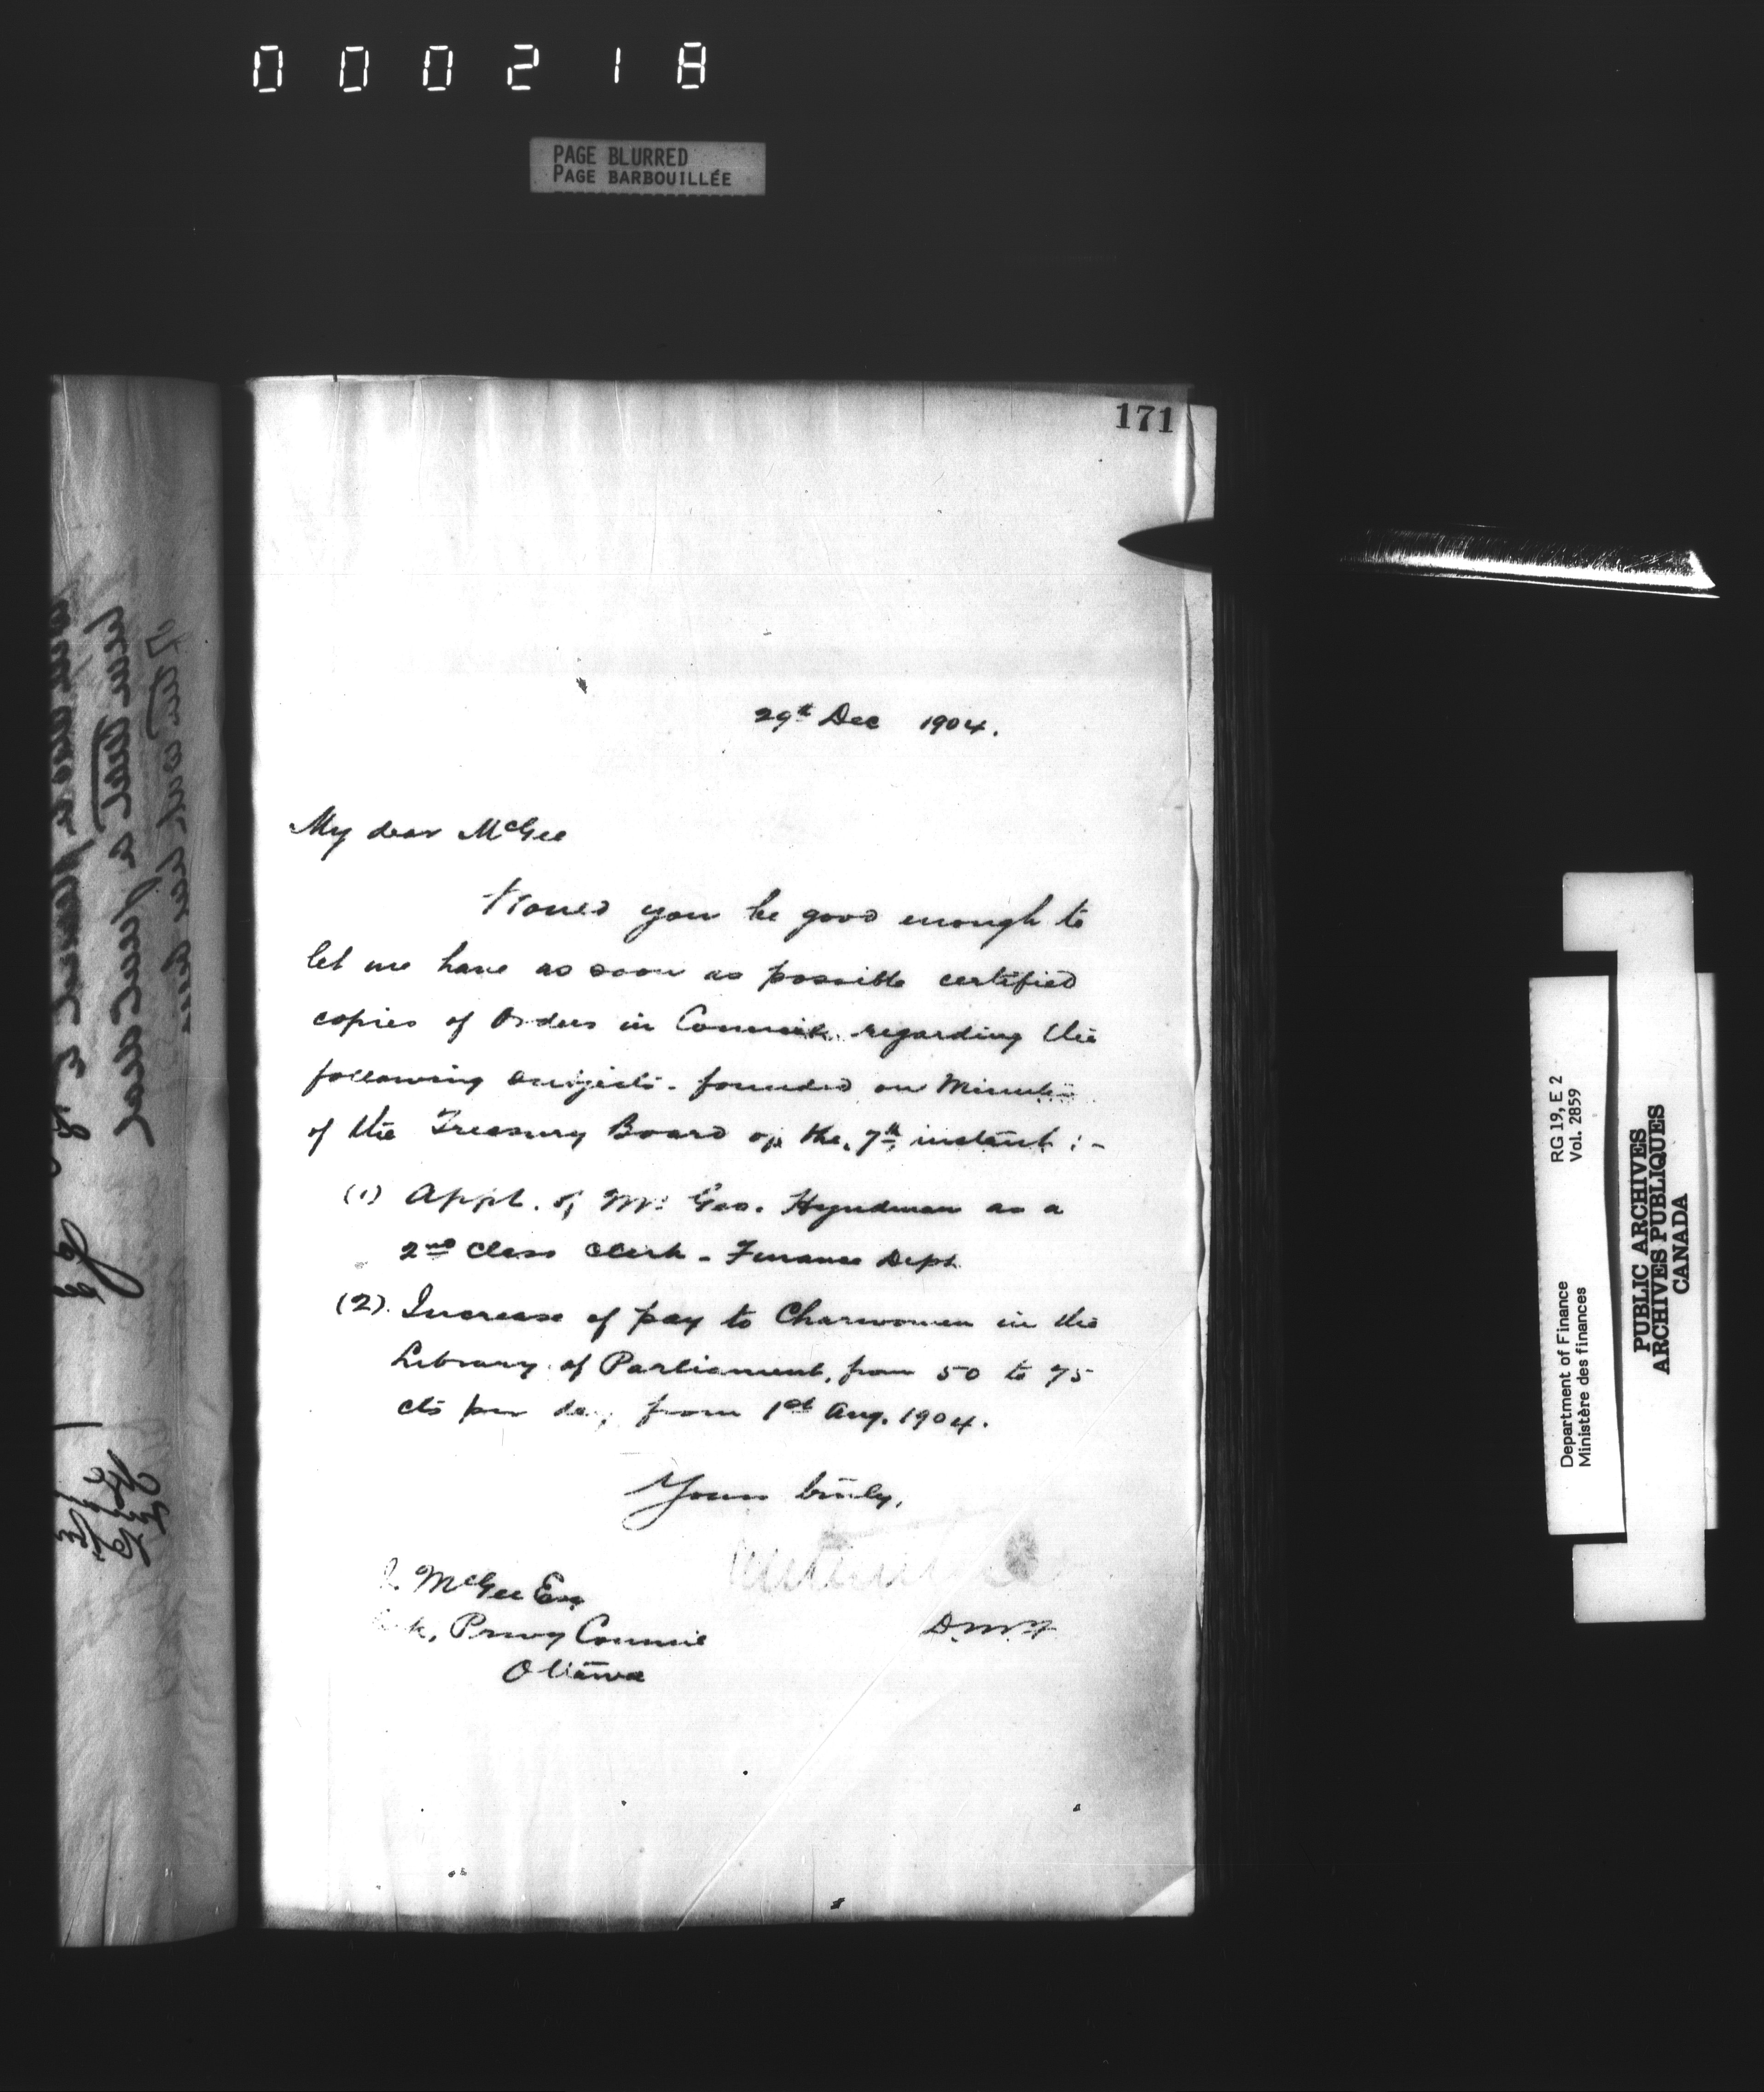 000218
PAGE BLURRED
PAGE BARBOUILLÉE
171
29th Dec 1904.
My dear McGee
Would you be good enough to
let me have as soon as possible certified
copies of Orders in Council regarding the
following subjects - founded on Minutes
of the Treasury Board of the 7th instant :-
(1) Appt. of Mr. Geo. Hyndman as a
2nd Class Clerk - Finance Dept
(2). Increase of pay to Charwomen in the
Library of Parliament, from 50 to 75
cts per day from 1st Aug. 1904.
Yours truly,
McGee Esq
Privy Council
Ottawa
D.M.F.
RG 19, E 2
Vol. 2859
Department of Finance
Ministère des finances
PUBLIC ARCHIVES
ARCHIVES PUBLIQUES
CANADA